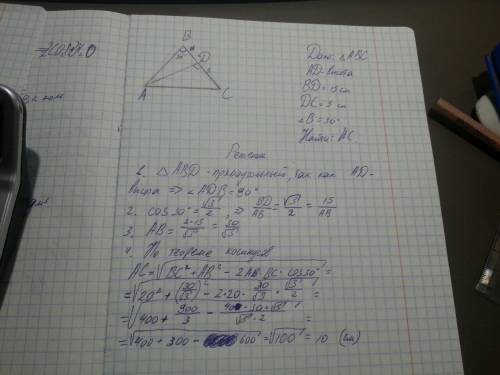 B
30°
D
A
C
Дано: △ABC
AD - высота
BD = 15 см
DC = 5 см
∠B = 30°
Найти: AC
Решение
1. △ABD - прямоугольный, так как AD-
высота => ∠ADB = 90°
2. cos30° = √3/2, => BD/AB = √3/2 = 15/AB
3. AB = 2·15/√3 = 30/√3
4. По теореме косинусов
AC = √(BC² + AB² - 2AB·BC·cos30°) =
= √(20² + (30/√3)² - 2·20·30/√3·√3/2) =
= √(400 + 900/3 - 40·30·√3/√3·2) =
= √(400 + 300 - 600) = √100 = 10 (см)